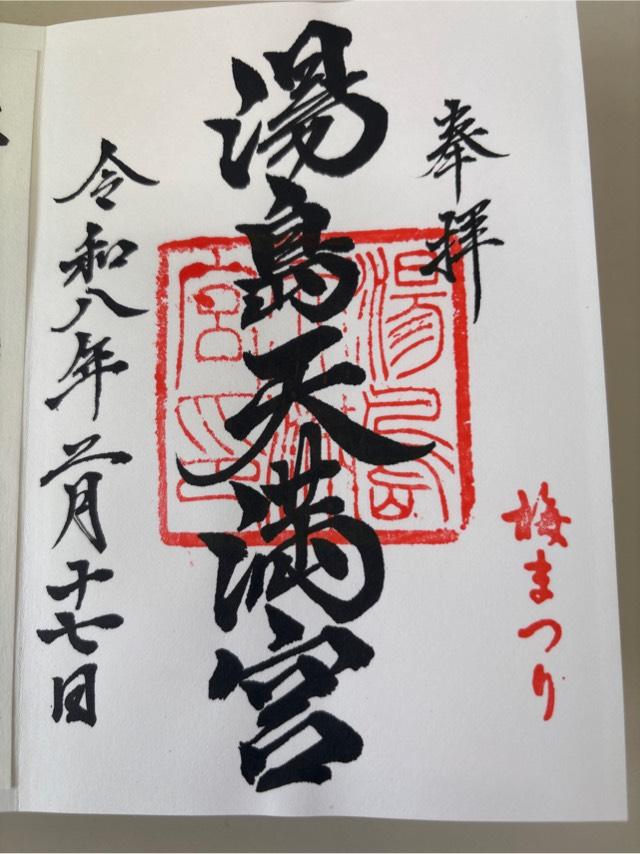 奉拝
梅まつり
湯島天満宮
令和八年二月十七日
湯島
天満
宮印